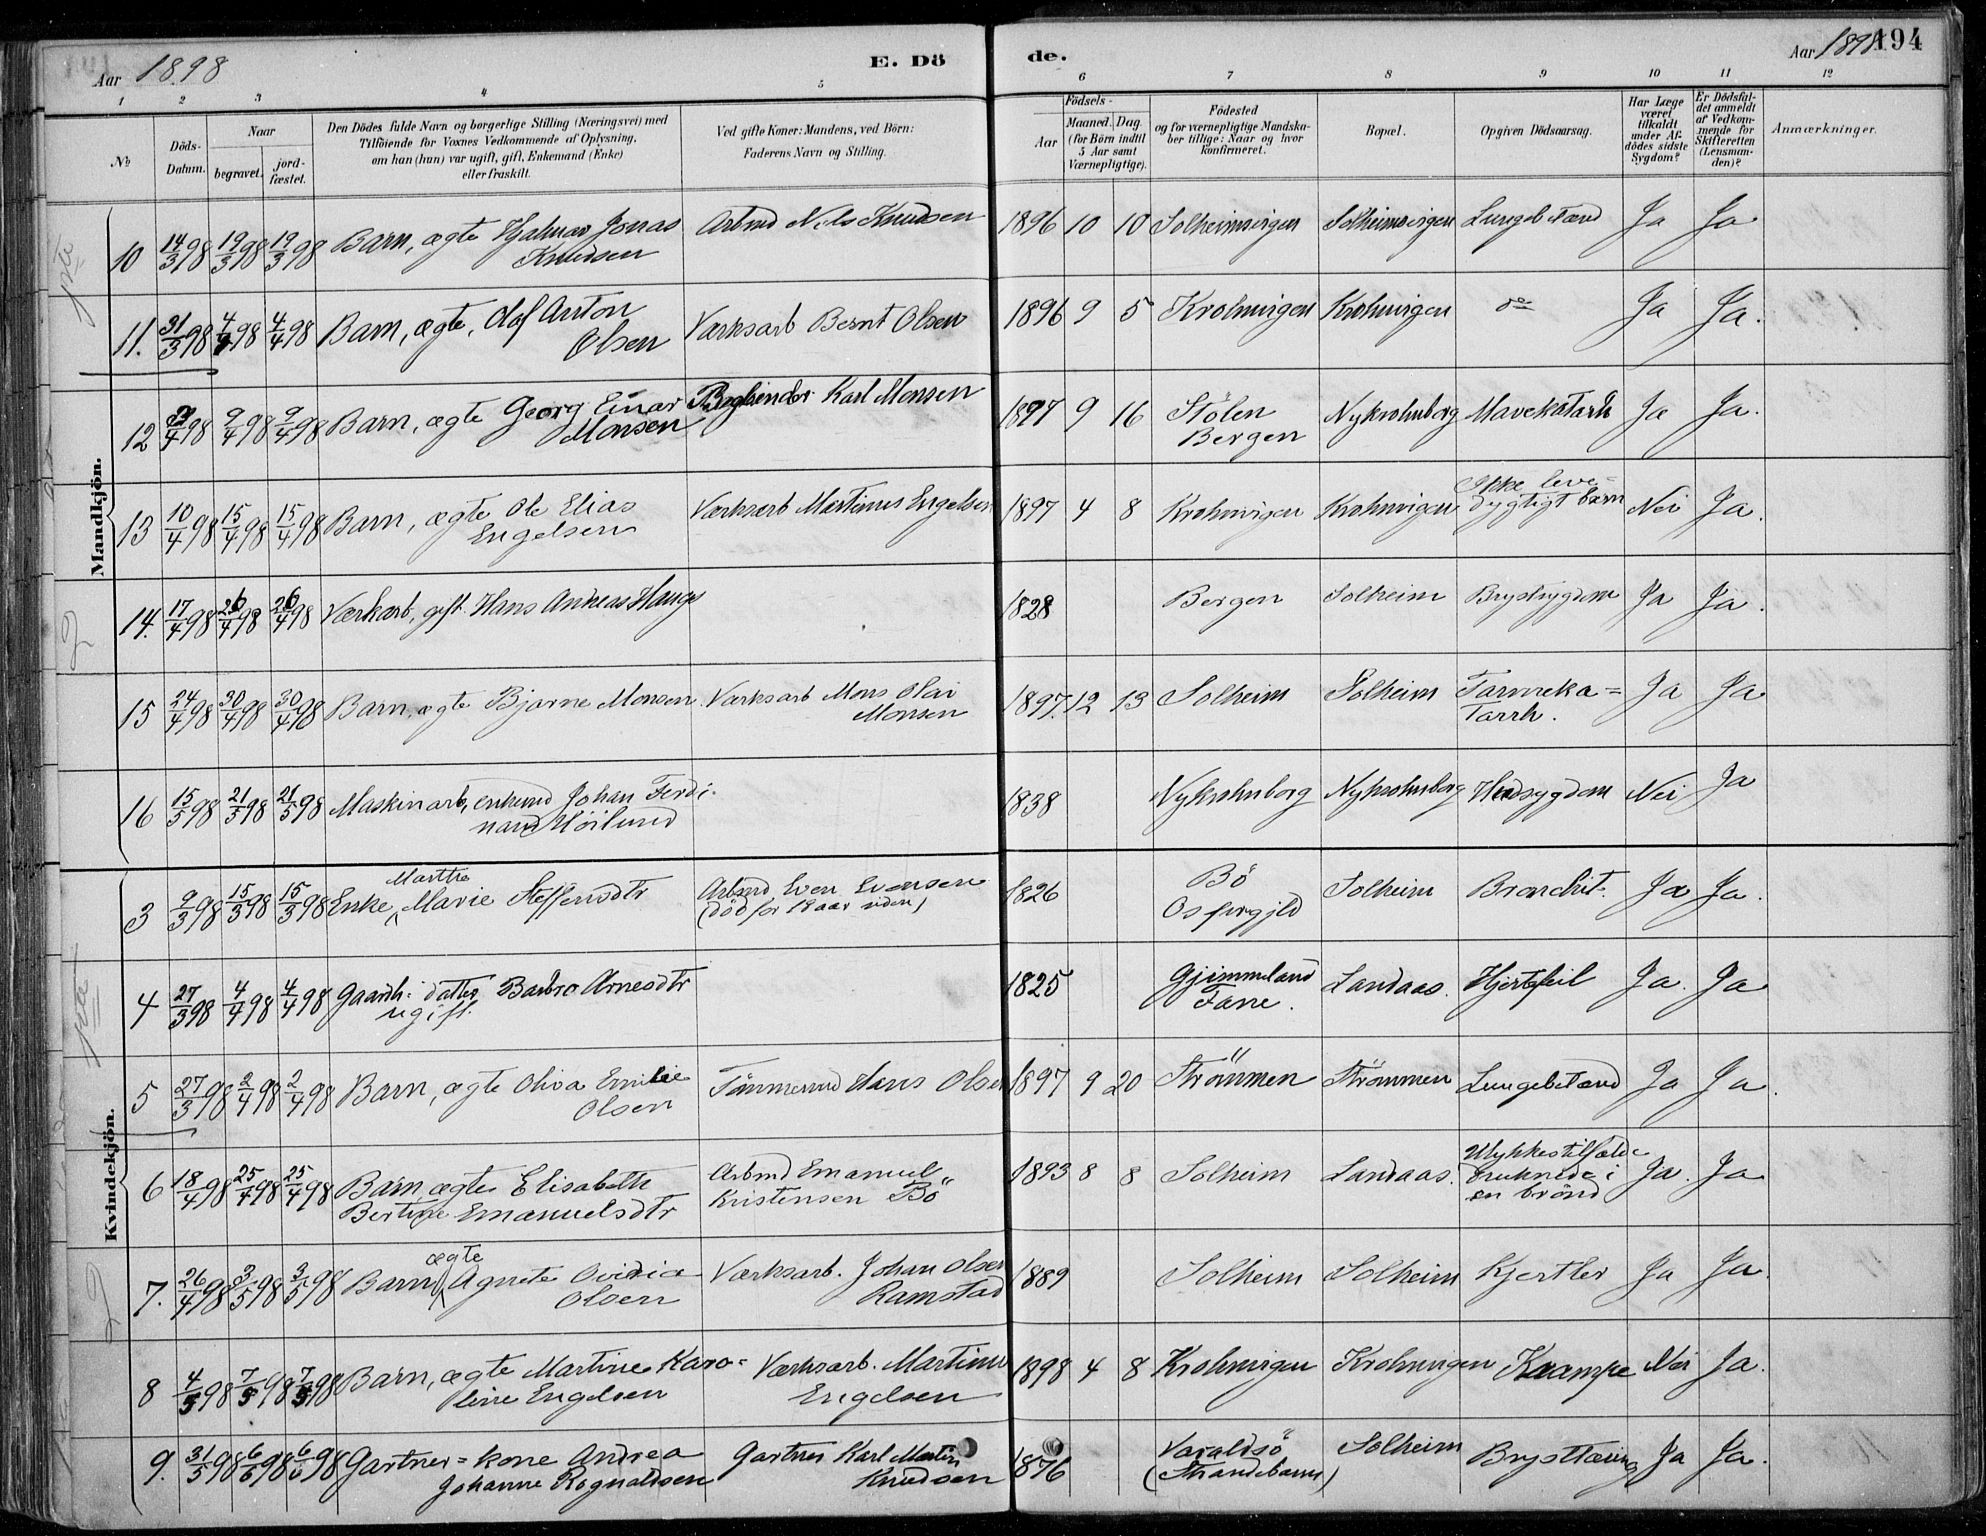 Aar 1898
E. Dö
de.
Aar 1898
194
1 2 3 4 5 6 7 8 9 10 11 12
No
Döds-Datum.
Naar
begravet.
jord-fæstet.
Den Dödes fulde Navn og borgerlige Stilling (Næringsvei) med
Tilföiende for Voxnes Vedkommende af Oplysning,
om han (hun) var ugift, gift, Enkemand (Enke)
eller fraskilt.
Ved gifte Koner: Mandens, ved Börn:
Faderens Navn og Stilling.
Födsels-
Aar
Maaned. Dag.
(for Börn indtil
5 Aar samt
Værnepligtige).
Födested
og for værnepligtige Mandska-
ber tillige: Naar og hvor
konfirmeret.
Bopæl.
Opgiven Dödsaarsag.
Har Læge
været
tilkaldt
under Af-
dödes sidste
Sygdom?
Er Dödsfal-
det anmeldt
af Vedkom-
mende for
Skifteretten
(Lensman-
den)?
Anmærkninger.
Mandkjön.
10 14/3 98 19/3 98 19/3 98 Barn, ægte Hjalmar Jonas Arbmd Niels Knudsen 1896 10 10 Solheimsvigen Solheimsvigen Lungebetænd Ja Ja
Knudsen
11. 31/3 98 4/4 98 4/4 98 Barn, ægte, Olaf Anton Værksarb Bernt Olsen 1896 9 5 Krohnvigen Krohnvigen do Ja Ja.
Olsen
12 /4 98 9/4 98 9/4 98 Barn, ægte Georg Einar Bogbinder Karl Monsen 1897 9 16 Stölen Nykrohnborg Mavekatarh Ja Ja.
Monsen Bergen
13 10/4 98 15/4 98 15/4 98 Barn, ægte Ole Elias Værksarb Martinus Engelsen 1897 4 8 Krohnvigen Krohnvigen Ikke leve=
Engelsen dygtigt barn Nei Ja.
14. 17/4 98 26/4 98 26/4 98 Værksarb, gift Hans Andreas Hauge 1828 Bergen Solheim Brystsygdom Ja Ja.
15 24/4 98 30/4 98 30/4 98 Barn, ægte Bjarne Monsen Værksarb Mons Olai 1897. 12 13 Solheim Solheim Tarmeka= Ja Ja
Monsen Tarrh.
16 15/5 98 21/5 98 21/5 98 Maskinarb, enkemd Johan Ferdi- 1838 Nykrohnborg Nykrohnborg Nei Ja
nand Höilund
Kvindekjön.
3 9/3 98 15/3 98 15/3 98 Enke Marthe Marie Steffensdtr Arbmd Even Evensen 1826 Bö Solheim Bronchit. Ja Ja.
(död for 19 aar siden) Os prgjld
4 27/3 98 4/4 98 4/4 98 Gaardb: datter Barbro Arnesdtr 1825 Gjimmeland Landaas. Hjertefeil Ja. Ja
ugift. Fane.
5 27/3 98 2/4 98 2/4 98 Barn, ægte Oliva Emilie Tömmermd Hans Olsen 1897 9 20 Strömmen Strömmen Lungebetænd Ja Ja.
Olsen
6 18/4 98 25/4 98 25/4 98 Barn, ægte Elisabeth Arbmd Emanuel 1893 8 8 Solheim Landaas. Ulykkestilfælde Ja. Ja
Bertine Emanuelsdtr Kristensen Bö druknede i
en brönd
7. 26/4 98 3/5 98 3/5 98 Barn ægte Agnete Ovidia Værksarb. Johan Olsen 1889 Solheim Solheim Kjertler Ja Ja.
Olsen Ramstad
8 4/5 98 7/5 98 7/5 98 Barn, ægte Martine Karo= Værksarb. Martinus 1898 4 8 Krohnvigen Krohnvigen Krampe Nei Ja.
line Engelsen Engelsen
9. 31/5 98 6/6 98 6/6 98 Gartner=kone Andrea Gartner Karl Martin 1876 Varaldsö Solheim Brysttæring Ja Ja.
Johanne Rognaldsen Knudsen (Strandebarm)